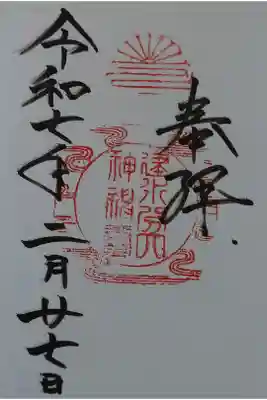 奉拝
建水分
神社
令和七年二月廿七日